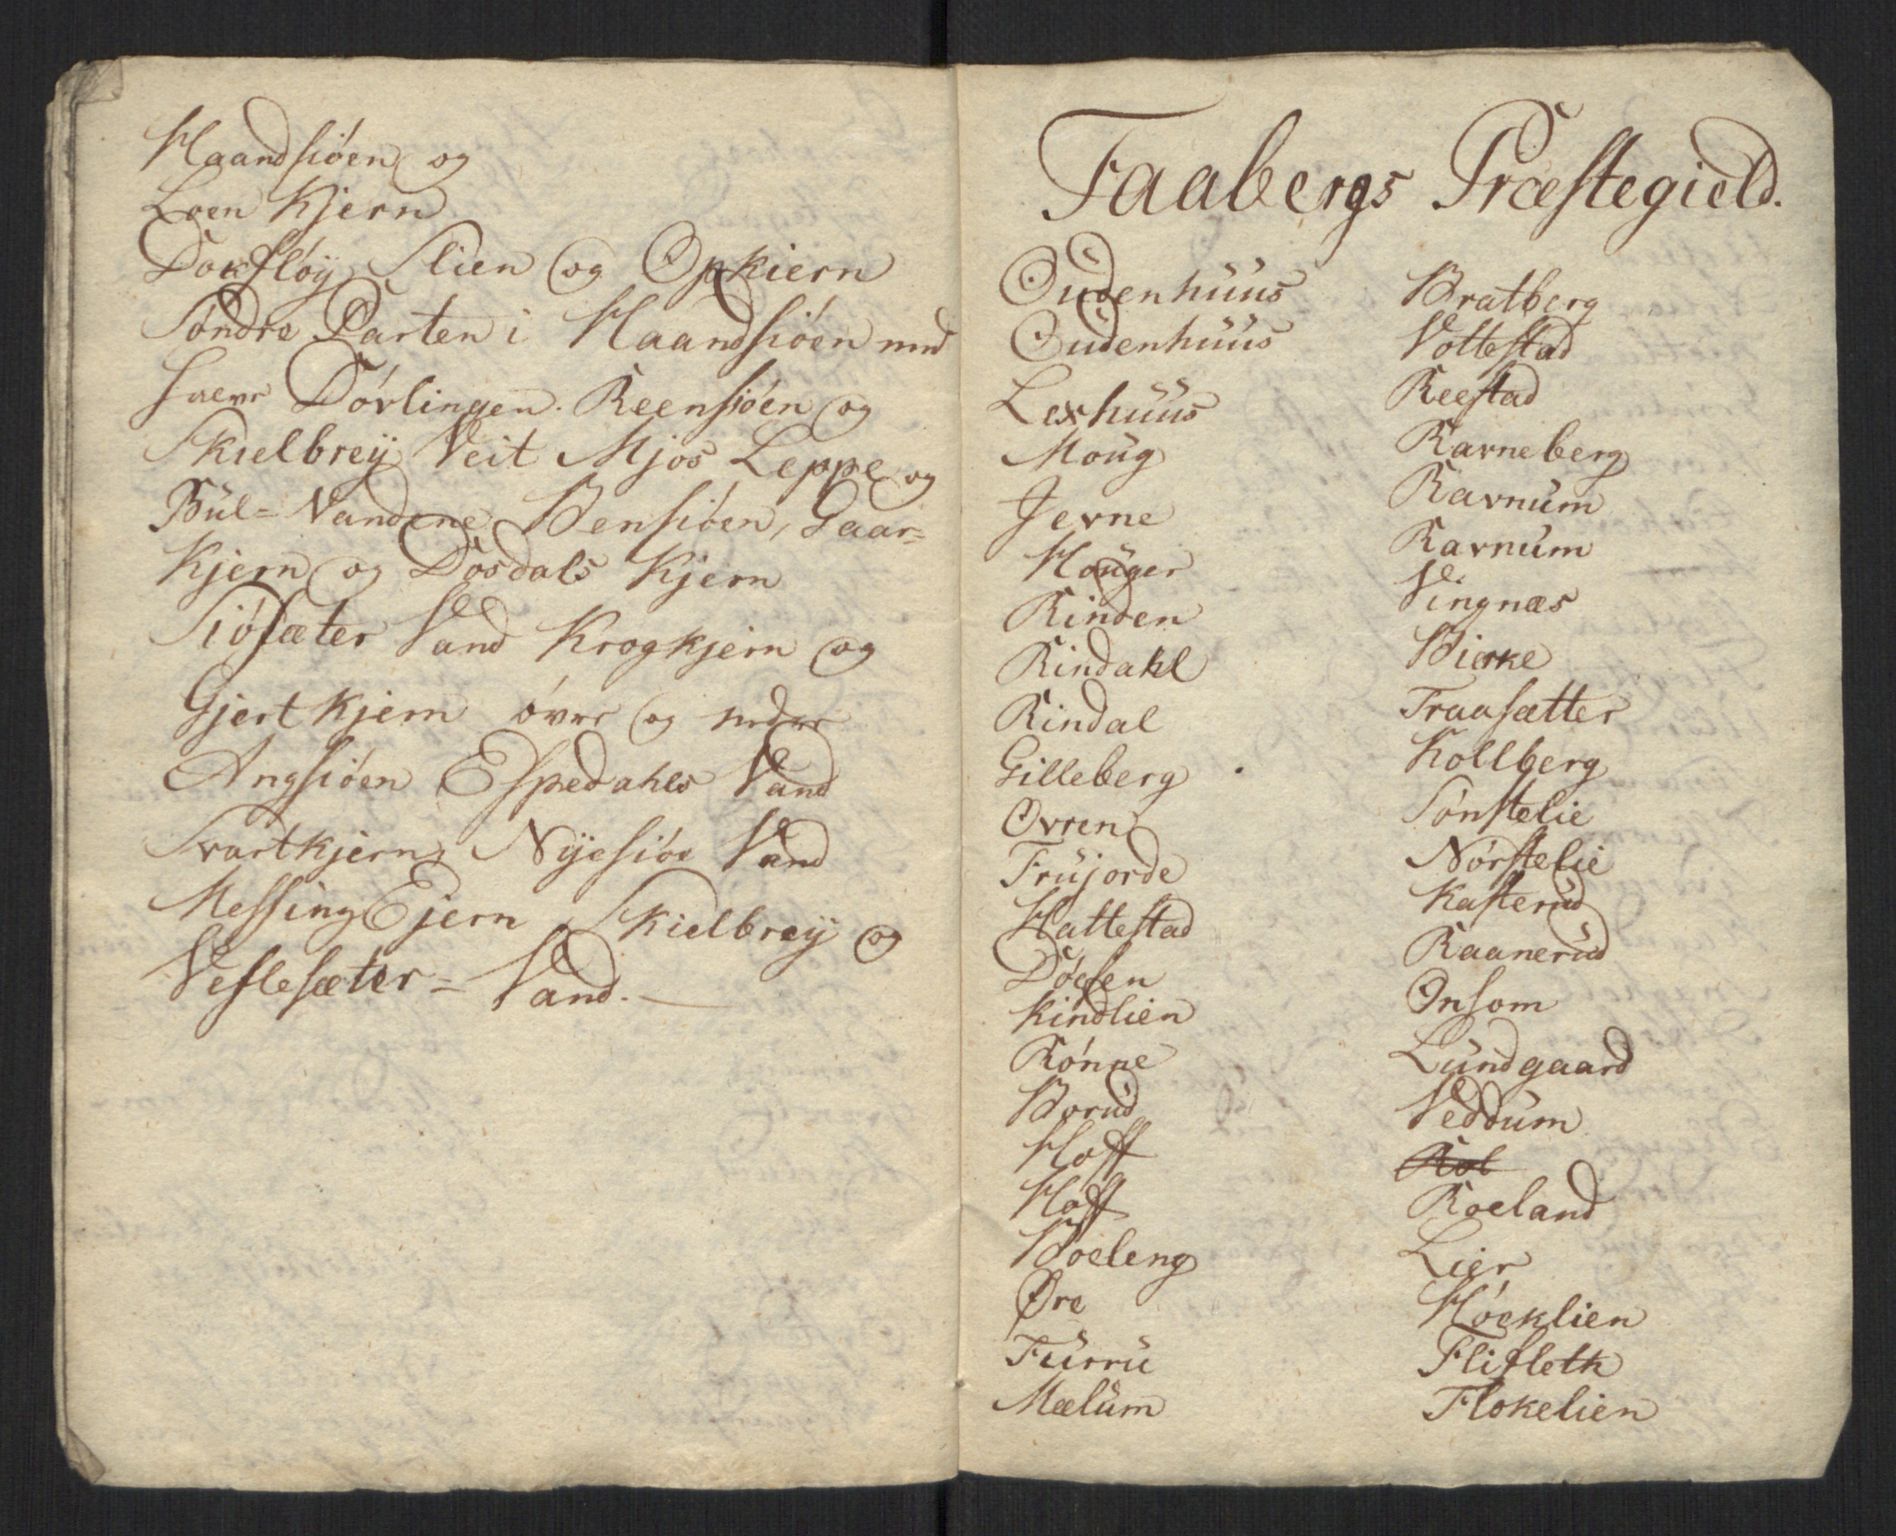 Haandsiöen og
Loen Kjern
Dokfløy, Slien og Opkiern
Söndre Parten i Haandsiöen med
halve Dövlingen. Reensjöen og
Skielbrey Veit Mjos Leppe og
Bül= Vandene Bensiöen, Gaar=
Kjern og Dösdals Kjern
Siösæter Vand Krogkjern og
Gjertkjern övre og nedre
Angsiöen Espedahls Vand
Svartkjern, Nÿesiöe Vand
Messing Ejern Skielbreÿ og
Veslesæter= Vand.
Faabergs Præstegield.
Oudenhüüs
Oudenhüüs
Lexhüüs
Moüg
Jevne
Houger
Rinden
Rindahl
Rindal
Gilleberg
Ovren
Früjorde
Hattestad
Döesen
Kindlien
Rönne
Borüd
Hoff
Hoff
Boeleng
Øre
Fürrü
Mælüm
Bratberg
Vottestad
Reestad
Ravneberg
Ravnüm
Ravnüm
Vingnæs
Bierke
Traasætter
Kollberg
Sönstelie
Nörstelie
Kasterüd
Raanerüd
Onsom
Lündgaard
Veddüm
Rol
Roeland
Lier
Höeklien
Flisleth
Flokelien